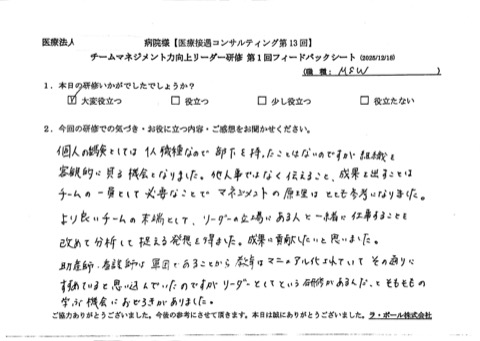 医療法人　　　　　病院様【医療接遇コンサルティング第13回】
チームマネジメント力向上リーダー研修 第1回フィードバックシート (2025/12/18)
(職種: MSW )
1．本日の研修いかがでしたでしょうか？
☑ 大変役立つ　□ 役立つ　□ 少し役立つ　□ 役立たない
2．今回の研修での気づき・お役に立つ内容・ご感想をお聞かせください。
個人の経験としては 1人職種なので 部下を持ったことはないのですが 組織を
客観的に見る機会となりました。他人事ではなく伝えること、成果を出すことは
チームの一員として必要なことで マネジメントの原理は とても参考になりました。
より良いチームの末端として、リーダーの立場にある人と一緒に仕事することを
改めて分析して捉える発想を得ました。成果に貢献したいと思いました。
助産師・看護師は 集団であることから 教育はマニュアル化されていて その通りに
すすめていると思い込んでいたのですが リーダーとしてという研修があるんだ、と そもそもの
学ぶ機会に おどろきがありました。
ご協力ありがとうございました。今後の参考にさせて頂きます。本日は誠にありがとうございました。ラ・ポール株式会社